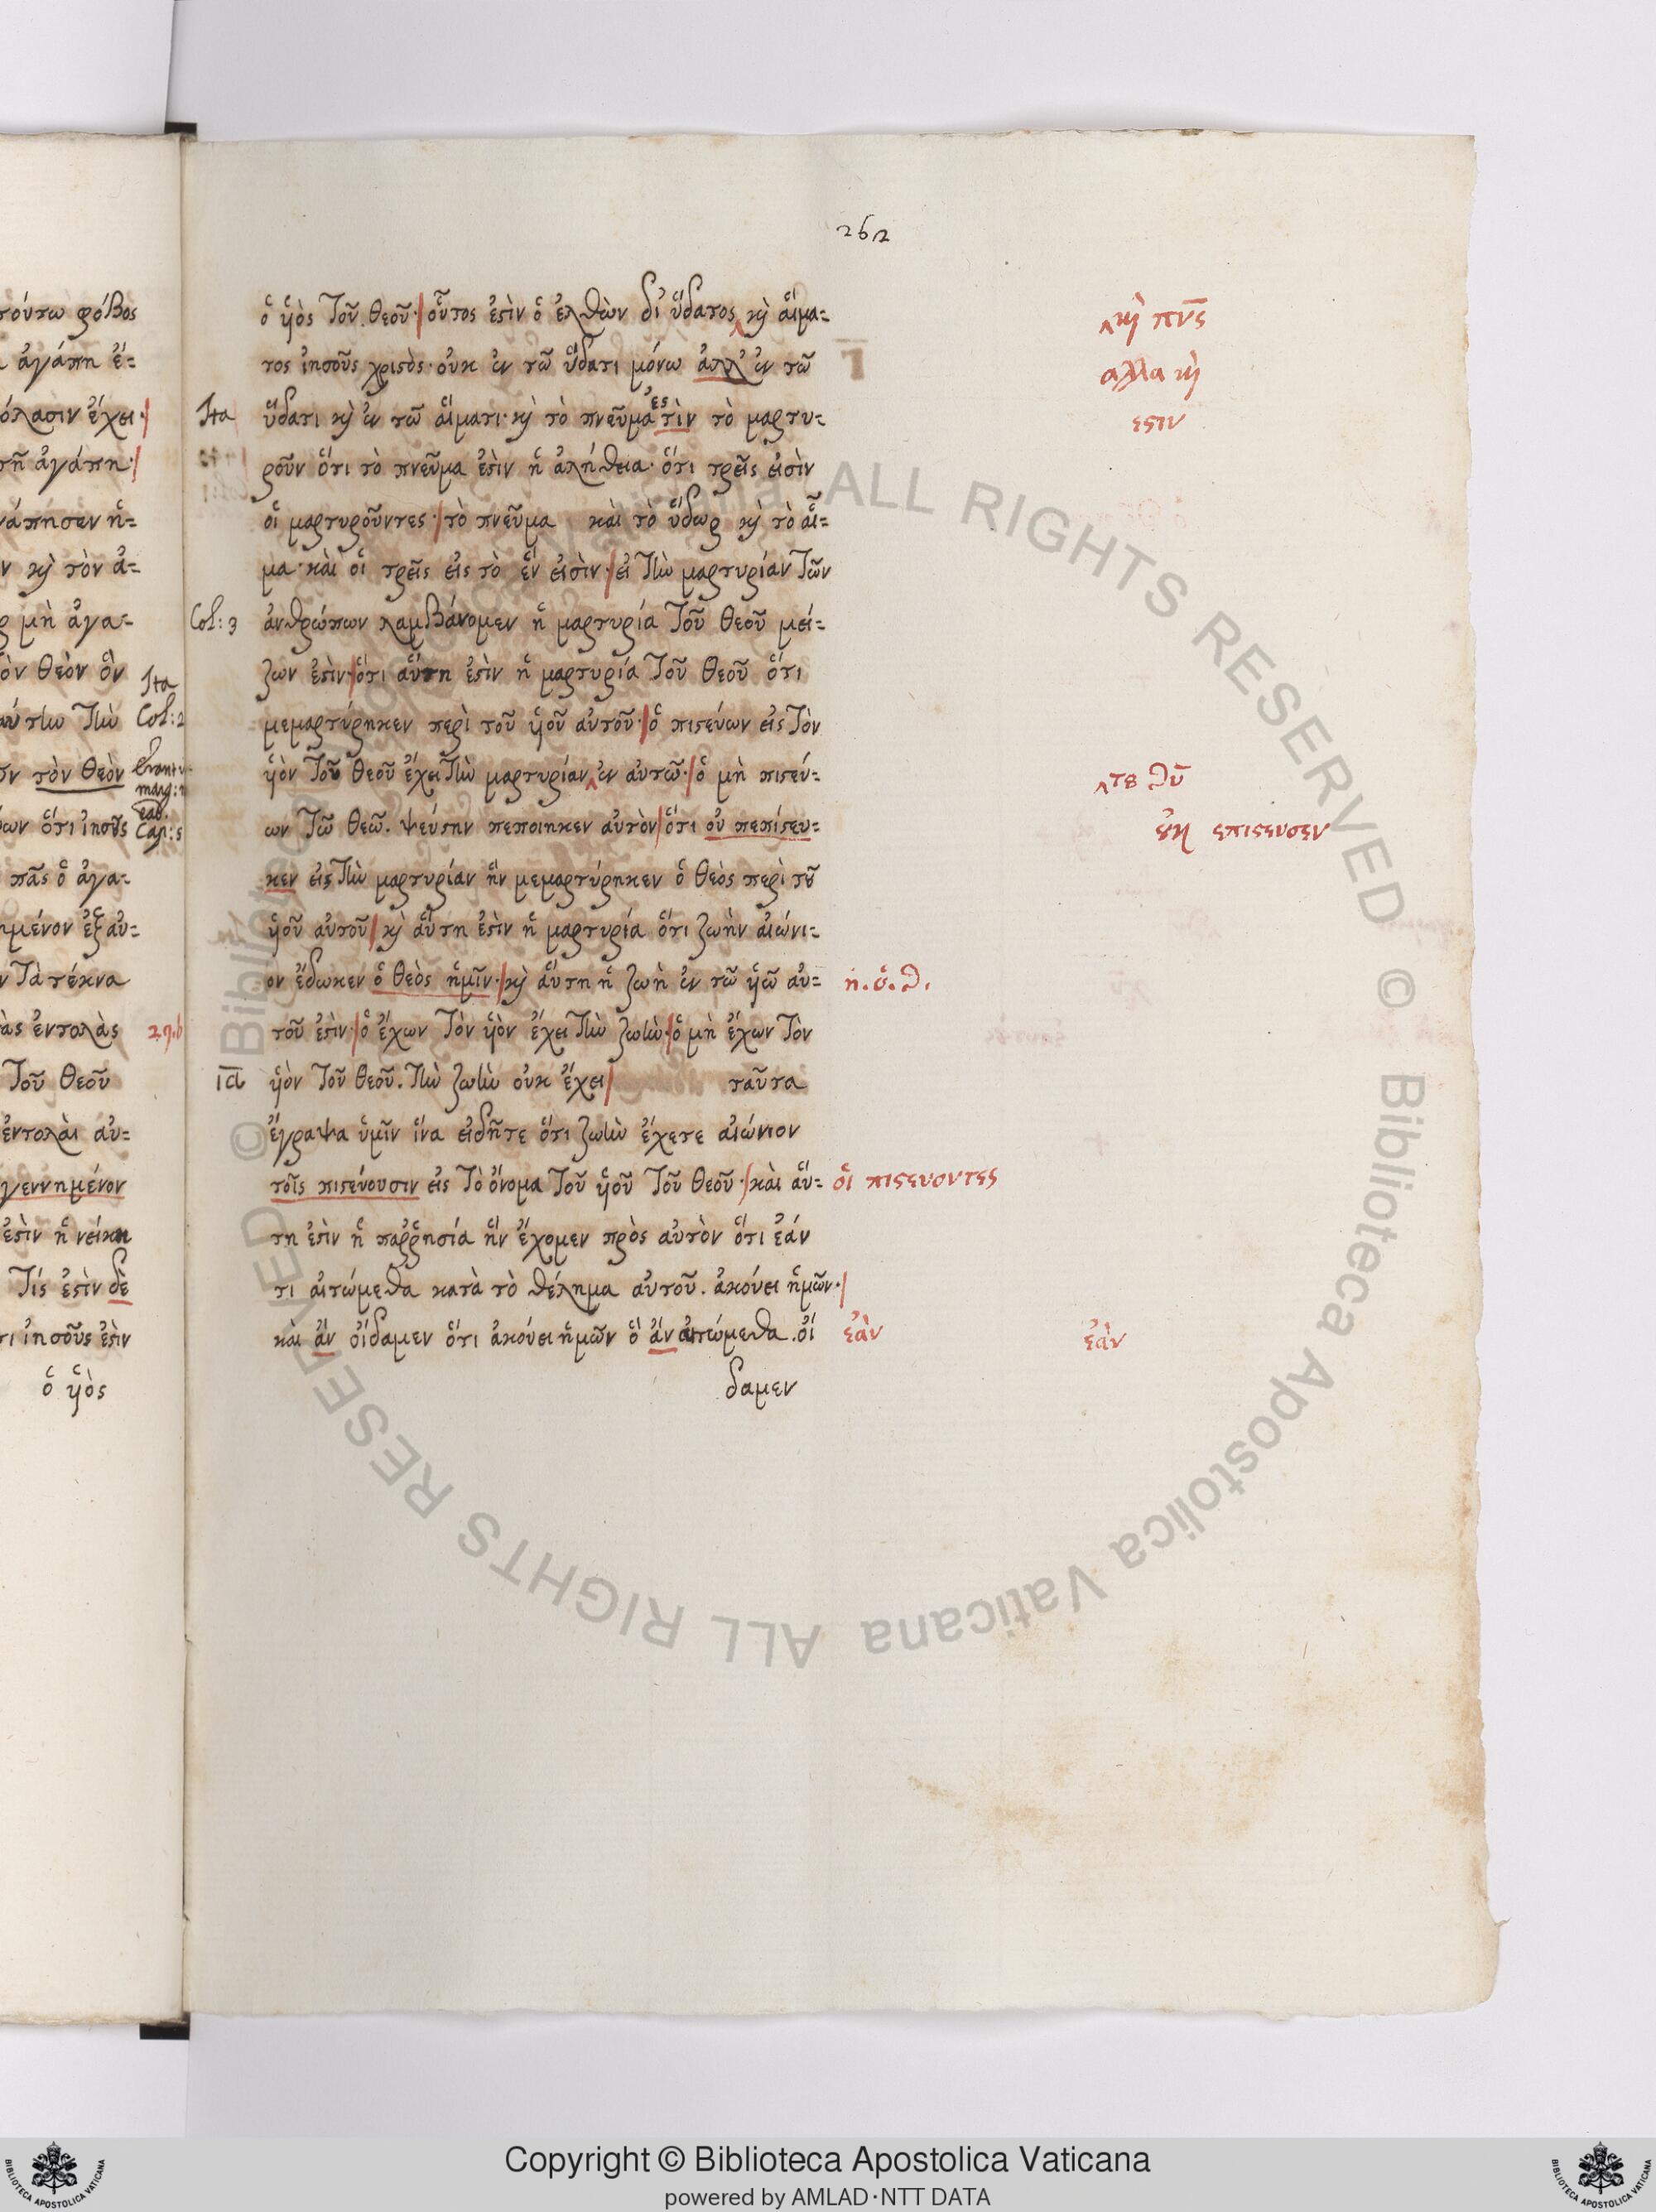 262
ὁ ὑϊὸς τοῦ θεοῦ· οὗτος ἐστὶν ὁ ἐλθὼν δι' ὕδατος κὴ αἵμα=
τος ἰησοῦς χριστὸς· οὐκ ἐν τῶ ὕδατι μόνω ἀλλ' ἐν τῶ
Ita ὕδατι κὴ ἐν τῶ αἵματι· κὴ τὸ πνεῦμα ἐστὶν τὸ μαρτυ=
ροῦν ὅτι τὸ πνεῦμα ἐστὶν ἡ ἀλήθεια· ὅτι τρεῖς εἰσὶν
οἱ μαρτυροῦντες· τὸ πνεῦμα καὶ τὸ ὕδωρ κὴ τὸ αἷ=
μα· καὶ οἱ τρεῖς εἰς τὸ ἕν εἰσὶν· εἰ τὴν μαρτυρίαν τῶν
Col: 3 ἀνθρώπων λαμβάνομεν ἡ μαρτυρία τοῦ θεοῦ μεί=
ζων ἐστὶν· ὅτι αὕτη ἐστὶν ἡ μαρτυρία τοῦ θεοῦ ὅτι
μεμαρτύρηκεν περὶ τοῦ ὑϊοῦ αὐτοῦ· ὁ πιστεύων εἰς τὸν
ὑϊὸν τοῦ θεοῦ ἔχει τὴν μαρτυρίαν ἐν αὐτῶ· ὁ μὴ πιστεύ=
ων τῶ θεῶ. ψεύστην πεποιηκεν αὐτὸν ὅτι οὐ πεπίστευ=
κεν εἰς τὴν μαρτυρίαν ἣν μεμαρτύρηκεν ὁ θεὸς περὶ τοῦ
ὑϊοῦ αὐτοῦ κὴ αὕτη ἐστὶν ἡ μαρτυρία ὅτι ζωὴν αἰώνι=
ον ἔδωκεν ὁ θεὸς ἡμῖν· κὴ αὕτη ἡ ζωὴ ἐν τῶ ὑϊῶ αὐ=
τοῦ ἐστὶν· ὁ ἔχων τὸν ὑϊὸν ἔχει τὴν ζωὴν· ὁ μὴ ἔχων τὸν
ὑϊὸν τοῦ θεοῦ. τὴν ζωὴν οὐκ ἔχει ταῦτα
ἔγραψα ὑμῖν ἵνα εἰδῆτε ὅτι ζωὴν ἔχετε αἰώνιον
τοῖς πιστεύουσιν εἰς τὸ ὄνομα τοῦ ὑϊοῦ τοῦ θεοῦ· καὶ αὕ=
τη ἐστὶν ἡ παῤῥησία ἣν ἔχομεν πρὸς αὐτὸν ὅτι ἐάν
τι αἰτώμεθα κατὰ τὸ θέλημα αὐτοῦ. ἀκούει ἡμῶν·
καὶ ἄν οἴδαμεν ὅτι ἀκούει ἡμῶν ὃ ἄν αἰτώμεθα. οἴ
δαμεν
κὴ πνς
αλλα κὴ
εστιν
του θῦ
οὐκ επιστευσεν
ἡ. ὁ. θ.
οἱ πιστευοντες
ἐὰν
ἐὰν
τούτω φόβος
ἀγάπη ἐ=
όλασιν ἔχει·
τῆ ἀγάπη·
γάπησεν ἡ=
ν κὴ τὸν ἀ=
ρ μὴ ἀγα=
ὸν θεὸν ὃν
Ita
Col: 2
ν τὸν θεὸν
Cap: 5
ων ὅτι ἰησοῦς
πᾶς ὁ ἀγα=
ημένον ἐξ αὐ=
ν τὰ τέκνα
ὰς ἐντολὰς
τοῦ θεοῦ
ἐντολὰι αὐ=
γεννημένον
ἐστὶν ἡ νείκη
τίς ἐστὶν δὲ
τι ἰησοῦς ἐστὶν
ὁ ὑϊὸς
© Biblioteca Apostolica Vaticana ALL RIGHTS RESERVED
Copyright © Biblioteca Apostolica Vaticana
powered by AMLAD·NTT DATA
BIBLIOTECA APOSTOLICA VATICANA
BIBLIOTECA APOSTOLICA VATICANA